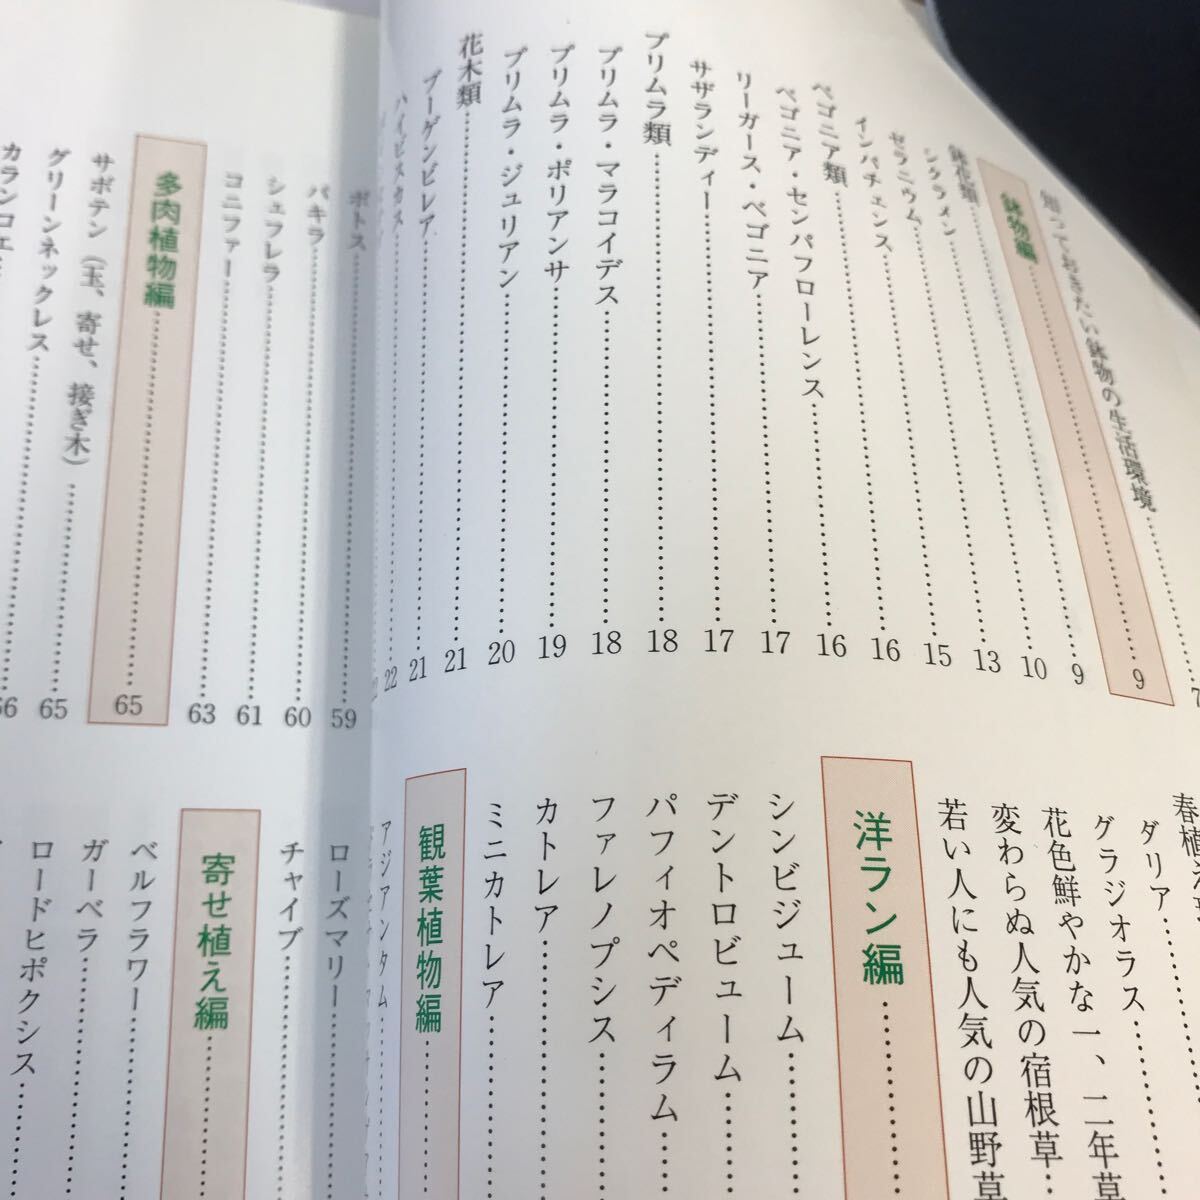 知っておきたい鉢物の生活環境………7
鉢物編………9
鉢花類………9
シクラメン………10
ゼラニウム………13
インパチェンス………15
ベゴニア類………16
ベゴニア・センパフローレンス………16
リーガース・ベゴニア………17
サザランディー………17
プリムラ類………18
プリムラ・マラコイデス………18
プリムラ・ポリアンサ………19
プリムラ・ジュリアン………20
花木類………21
ブーゲンビレア………21
ハイビスカス………22
ダリア………
グラジオラス………
花色鮮やかな一、二年草
変わらぬ人気の宿根草………
若い人にも人気の山野草
洋ラン編………
シンビジューム………
デントロビューム………
パフィオペディラム………
ファレノプシス………
カトレア………
ミニカトレア………
観葉植物編………
アジアンタム………
ポトス………59
パキラ………60
シェフレラ………61
コニファー………63
多肉植物編………65
サボテン（玉、寄せ、接ぎ木）………65
グリーンネックレス………65
カランコエ………66
ローズマリー………
チャイブ………
寄せ植え編………
ベルフラワー………
ガーベラ………
ロードヒポクシス………